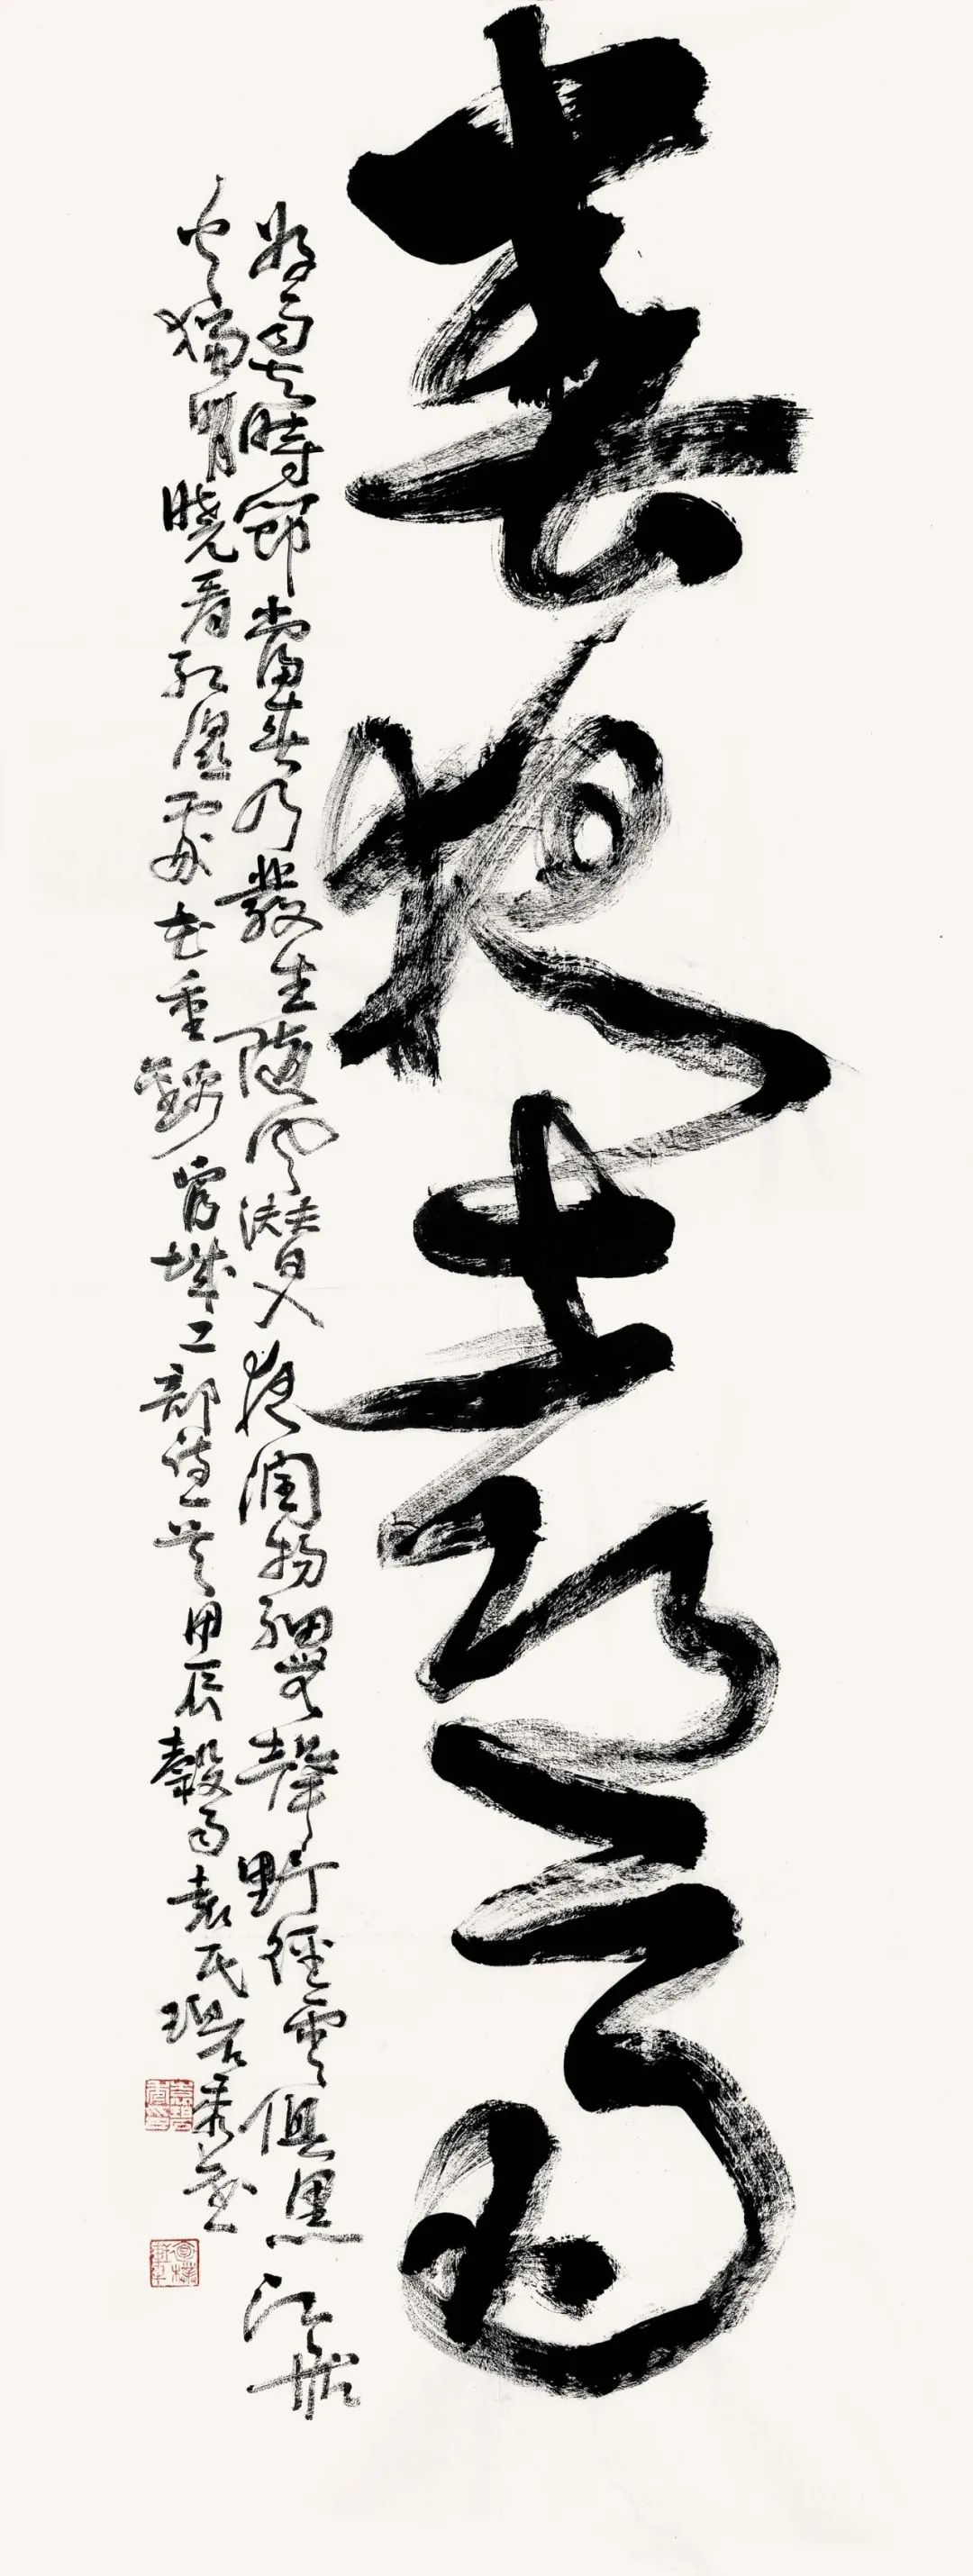 春夜喜雨
好雨知時節當春乃發生隨風潛入夜潤物細無聲野徑雲俱黑江船
火獨明曉看紅濕處花重錦官城工部詩一首甲辰穀雨袁氏碧秀